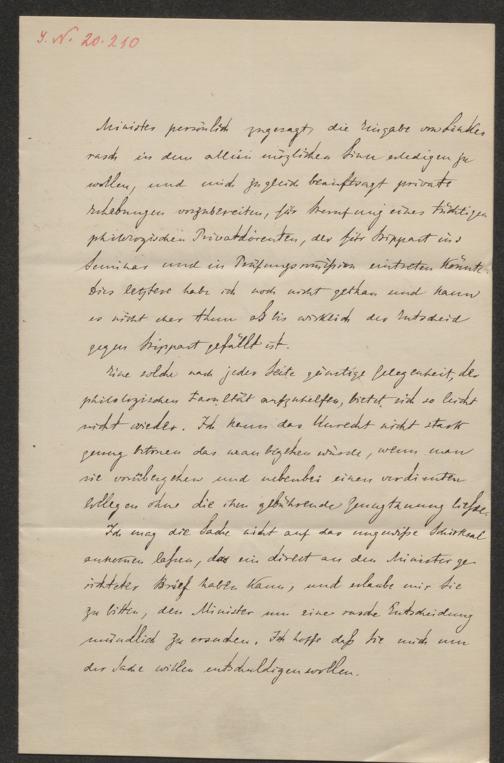 J. N. 20.210
Minister persönlich zugesagt, die Eingabe von Linker
rasch in dem allein möglichen Sinn erledigen zu
wollen, und mich zugleich beauftragt private
Erhebungen vorzubereiten, für Berufung eines tüchtigen
philologischen Privatdozenten, der für Bippart ins
Seminar und in Prüfungscommission eintreten könnte.
Dies letztere habe ich noch nicht gethan und kann
es nicht eher thun als bis wirklich der Entscheid
gegen Bippart gefällt ist.
Eine solche nach jeder Seite günstige Gelegenheit, der
philologischen Facultät aufzuhelfen, bietet sich so leicht
nicht wieder. Ich kann das Unrecht nicht stark
genug betonen das man begehen würde, wenn man
sie vorübergehen und nebenbei einen verdienten
Collegen ohne die ihm gebührende Genugthuung ließe.
Ich mag die Sache nicht auf das ungewiße Schicksal
ankommen laßen, das ein direct an den Minister ge
richteter Brief haben kann, und erlaube mir Sie
zu bitten, den Minister um eine rasche Entscheidung
mündlich zu ersuchen. Ich hoffe daß Sie mich um
der Sache willen entschuldigen wollen.